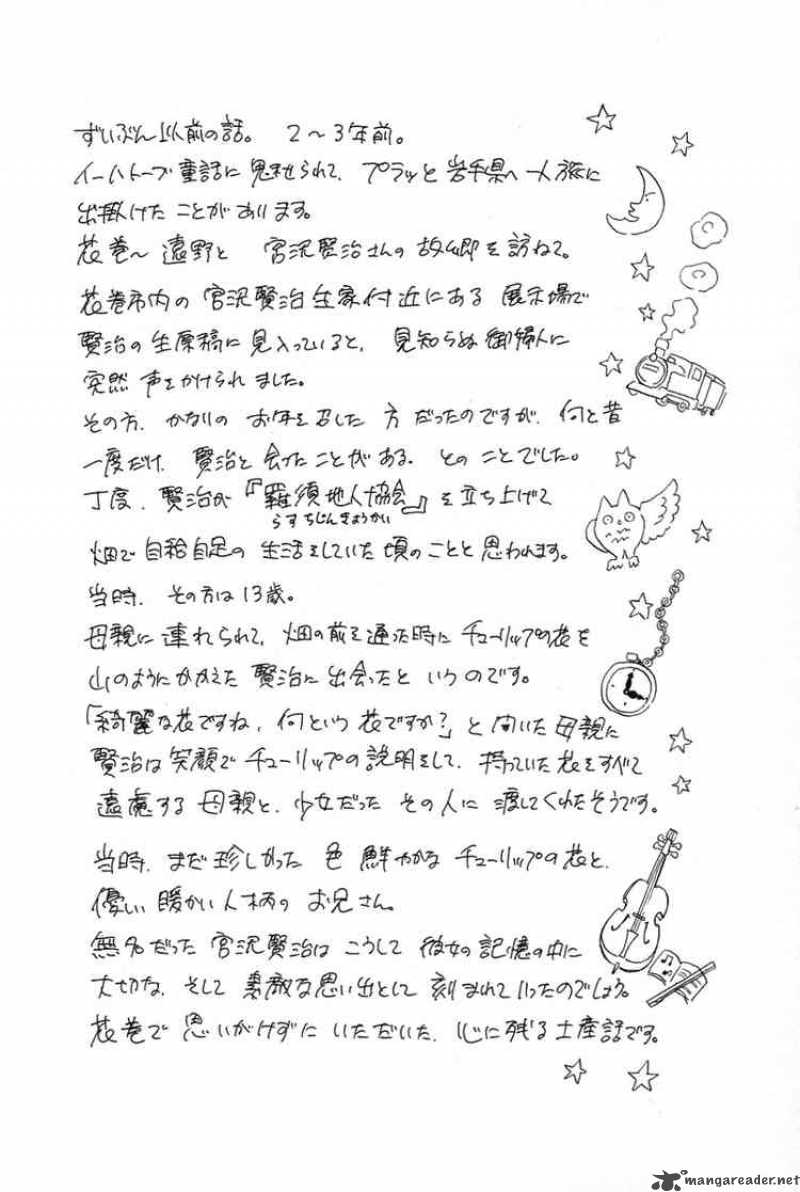 ずいぶん以前の話。 2～3年前。
イーハトーブ童話に魅せられて、プラッと岩手県へ一人旅に
出掛けたことがあります。
花巻～遠野と 宮沢賢治さんの故郷を訪ねて。
花巻市内の宮沢賢治生家付近にある展示場で
賢治の生原稿に見入っていると、見知らぬ御婦人に
突然声をかけられました。
その方、かなりのお年を召した方だったのですが、何と昔
一度だけ、賢治と会ったことがある、とのことでした。
丁度、賢治が『羅須地人協会』を立ち上げて
らすちじんきょうかい
畑で自給自足の生活をしていた頃のことと思われます。
当時、その方は13歳。
母親に連れられて、畑の前を通った時にチューリップの花を
山のようにかかえた賢治に出会ったというのです。
「綺麗な花ですね、何という花ですか?」と聞いた母親に
賢治は笑顔でチューリップの説明をして、持っていた花をすべて
遠慮する母親と、少女だったその人に渡してくれたそうです。
当時、まだ珍しかった色鮮やかなチューリップの花と、
優しい暖かい人柄のお兄さん。
無名だった宮沢賢治はこうして彼女の記憶の中に
大切な、そして素敵な思い出として刻まれていったのでしょう。
花巻で思いがけずにいただいた、心に残る土産話です。
mangareader.net